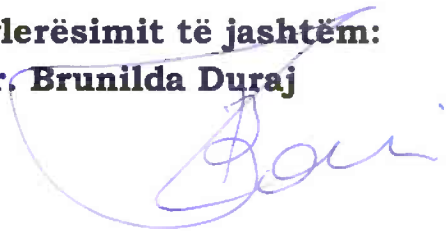 lerësimit të jashtëm:
r. Brunilda Duraj